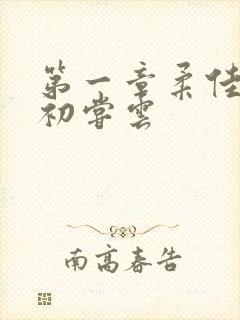 第一章柔佳
初尝雲
南高春告